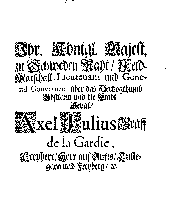 Ihr. Königl. Majest.
zu Schweden Raht/ Feld-
Marschall Lieutenant und Gene-
ral Gouverneur über das Hertzogthumb
Ehsten und die Stadt
Reval/
Axel Julius Graff
de la Gardie,
Freyherr/ Herr auf
und Freyberg/ ꝛc.